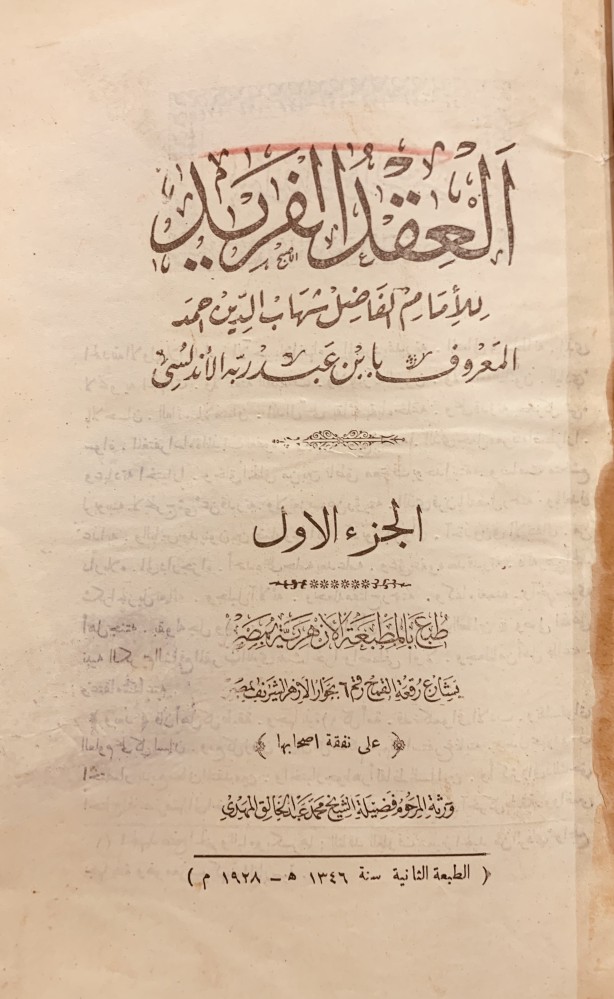 العِقْدُ الفَريد
للأمام الفاضل شهاب الدين احمد
المعروف بابن عبد ربه الأندلسي
الجزء الاول
طبع بالمطبعة الازهرية بمصر
بشارع رقعة القمح رقم ٦ بجوار الازهر الشريف بمصر
﴿ على نفقة اصحابها ﴾
ورثة المرحوم فضيلة الشيخ محمد عبد الخالق المهدي
( الطبعة الثانية سنة ١٣٤٦ هـ - ١٩٢٨ م )